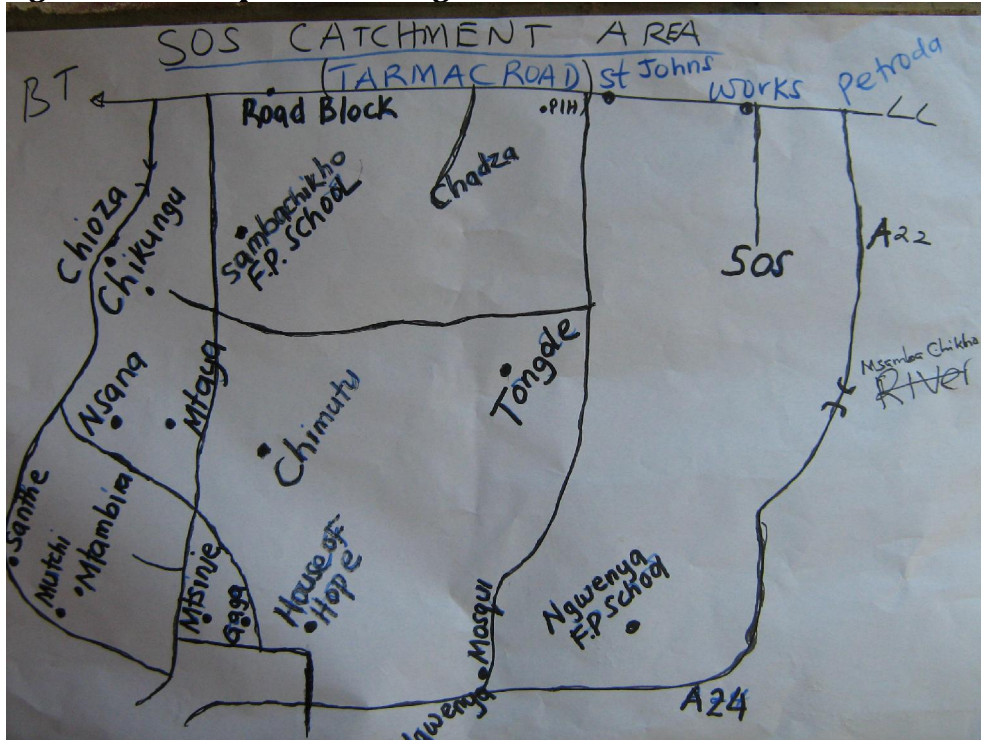 SOS CATCHMENT AREA
(TARMAC ROAD)
St Johns
Works
Petroda
BT
LL
Road Block
PIH
Chadza
Sambachikho
F.P. SCHOOL
Chioza
Chikungu
SOS
A22
Msamba Chikho
River
Tongole
Nsana
Mtaya
Chimutu
Santhe
Mutchi
Mtambira
Mtsinje
Gaga
House of
Hope
Ngwenya
F.P School
Mosqui
Ngwenya
A24